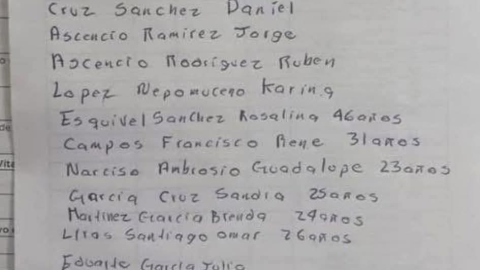 Cruz Sanchez Daniel
Ascencio Ramirez Jorge
Ascencio Rodriguez Ruben
Lopez Nepomuceno Karina
Esquivel Sanchez Rosalina 46 años
Campos Francisco Rene 31 años
Narciso Ambrosio Guadalope 23 años
Garcia Cruz Sandra 25 años
Martinez Garcia Brenda 24 años
Liras Santiago Omar 26 años
Eduardo Garcia Julio